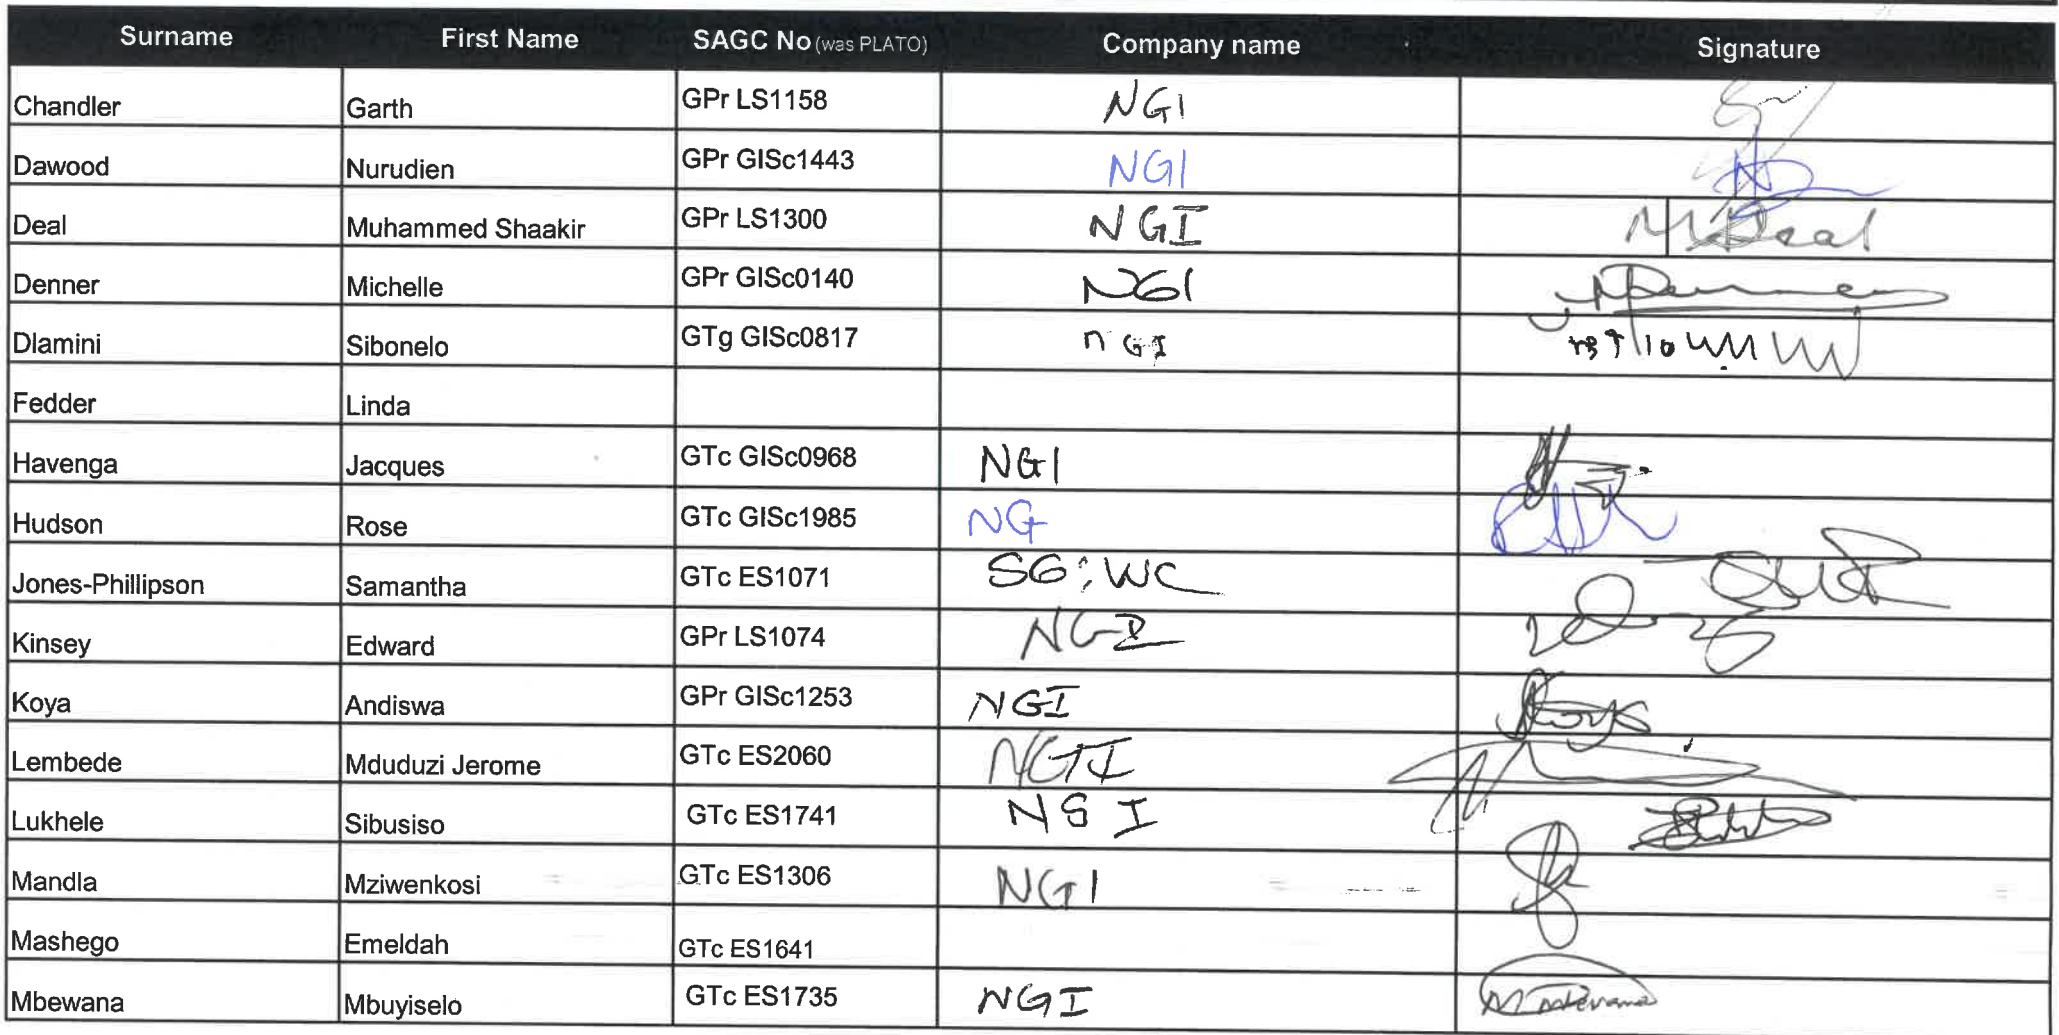 Surname First Name SAGC No (was PLATO) Company name Signature
Chandler Garth GPr LS1158 NGI
Dawood Nurudien GPr GISc1443 NGI
Deal Muhammed Shaakir GPr LS1300 NGI M Deal
Denner Michelle GPr GISc0140 NGI
Dlamini Sibonelo GTg GISc0817 nGI
Fedder Linda
Havenga Jacques GTc GISc0968 NGI
Hudson Rose GTc GISc1985 NG
Jones-Phillipson Samantha GTc ES1071 SG:WC
Kinsey Edward GPr LS1074 NGI
Koya Andiswa GPr GISc1253 NGI Koya
Lembede Mduduzi Jerome GTc ES2060 NGI
Lukhele Sibusiso GTc ES1741 NGI
Mandla Mziwenkosi GTc ES1306 NGI
Mashego Emeldah GTc ES1641
Mbewana Mbuyiselo GTc ES1735 NGI M Mbewana